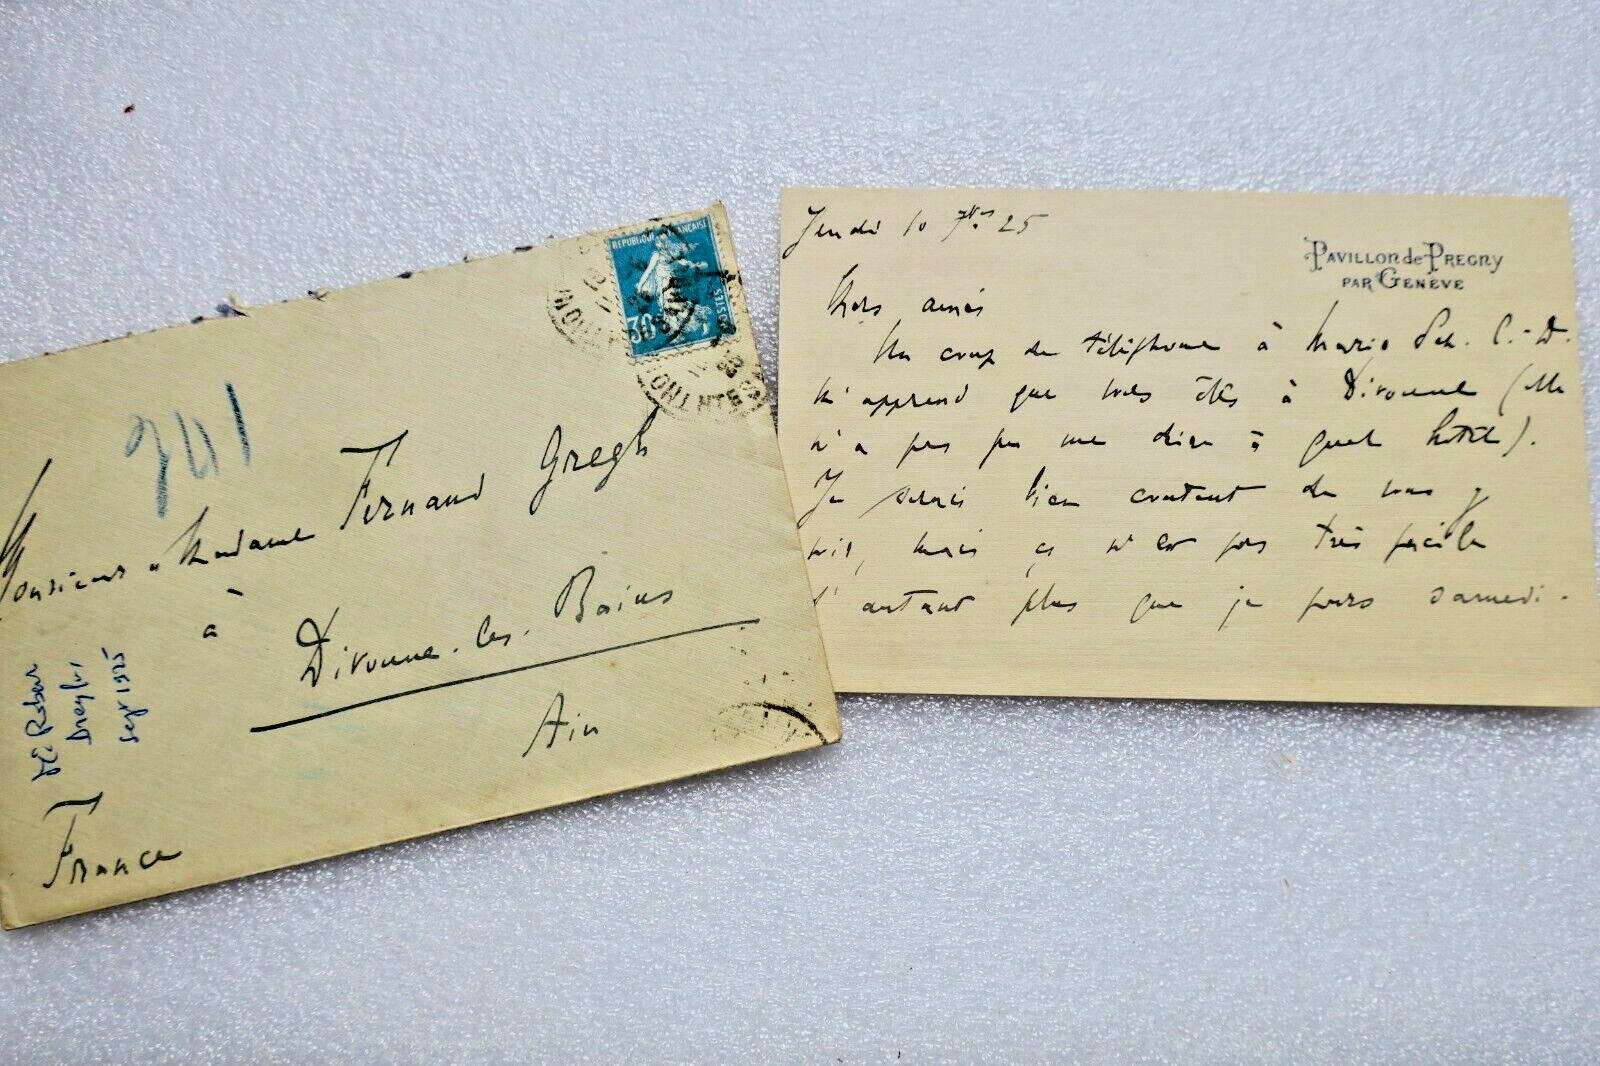 341
Monsieur & Madame Fernand Gregh
à
Divonne-les-Bains
Ain
France
Dreyfus
sept 1925
REPUBLIQUE FRANCAISE
POSTES
30
Jeudi 10 7bre 25
PAVILLON de PREGNY
PAR GENÈVE
Chers amis
Un coup de téléphone à Marie C.-D.
m'apprend que vous êtes à Divonne (elle
n'a pas pu me dire à quel hôtel).
Je serais bien content de vous y
voir, mais ça n'est pas très facile
d'autant plus que je pars samedi.